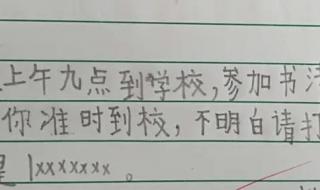 上午九点到学校,参加书
你准时到校,不明白请打
是 1xxxxxxx 。